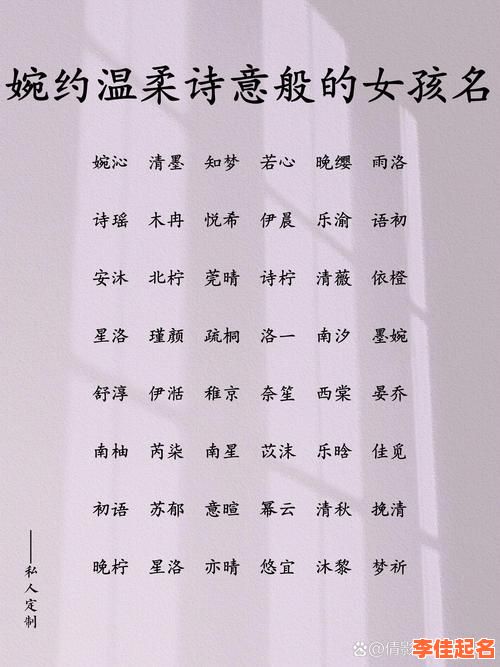 婉约温柔诗意般的女孩名
婉沁 清墨 知梦 若心 晚缨 雨洛
诗瑶 木冉 悦希 伊晨 乐渝 语初
安沐 北柠 莞晴 诗柠 清薇 依橙
星洛 瑾颜 疏桐 洛一 南汐 墨婉
舒淳 伊湉 稚京 奈笙 西棠 晏乔
南柚 芮柒 南星 苡沫 乐晗 佳觅
初语 苏郁 意暄 幂云 清秋 挽清
晚柠 星洛 亦晴 悠宜 沐黎 梦祈
——私人定制
倩影
李佳起名